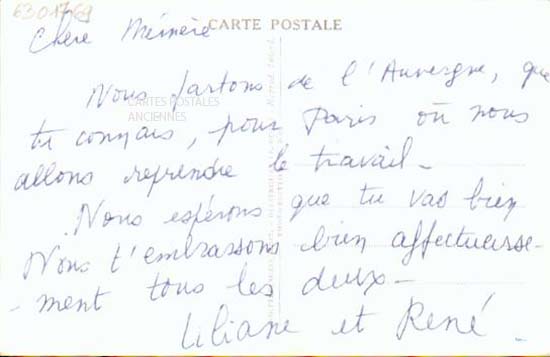 63017-69
CARTE POSTALE
Chère Mémère
Nous partons de l'Auvergne, que
CARTES POSTALES
ANCIENNES
tu connais, pour Paris où nous
allons reprendre le travail -
Nous espérons que tu vas bien
Nous t'embrassons bien affectueuse-
- ment tous les deux -
Liliane et René